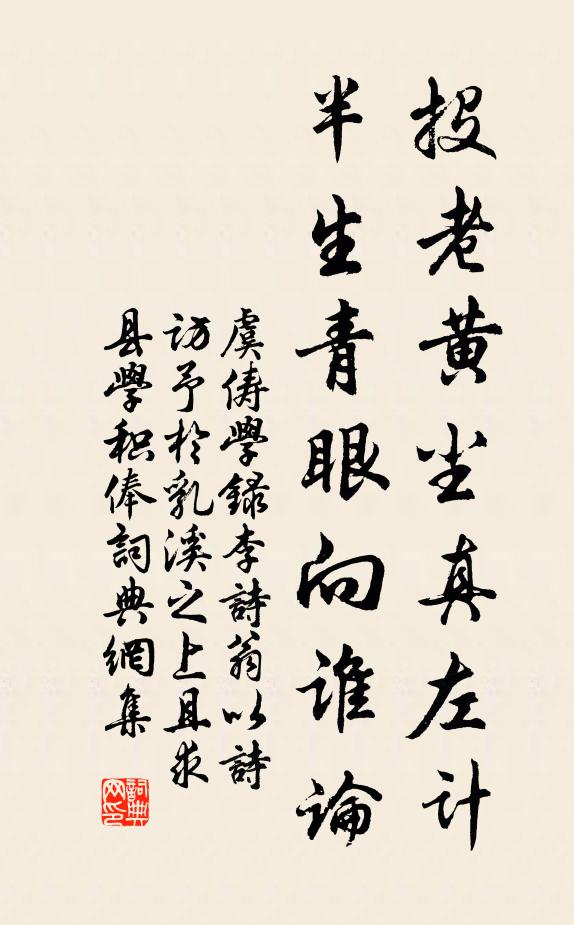 投老黄尘真左计
半生青眼向谁论
虞俦學録李詩翁以詩
访予於乳溪之上且求
县學积俸詞典網集
詞典网印